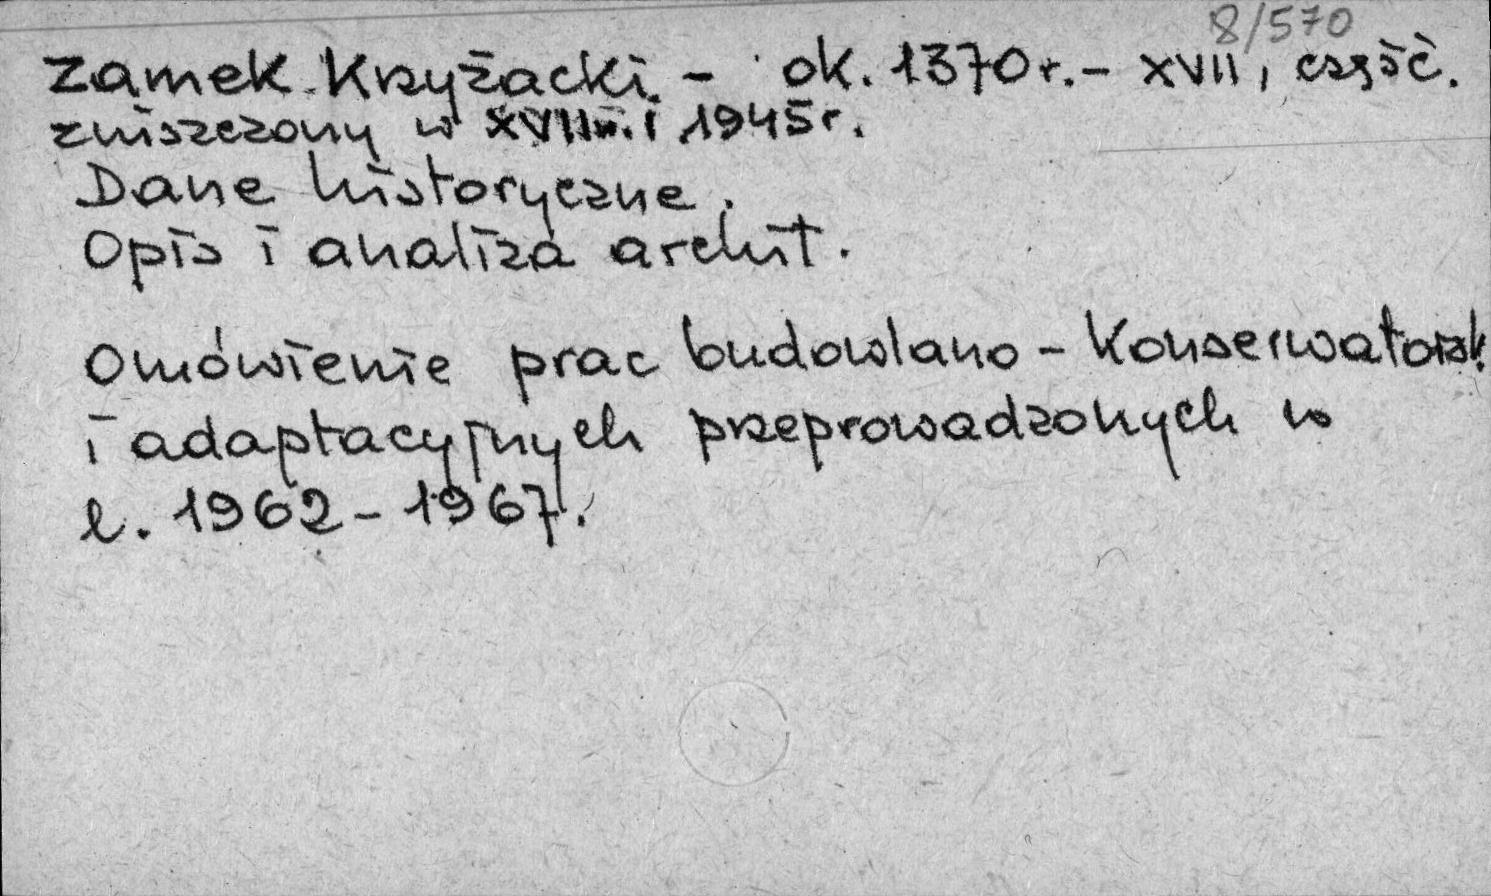 8/570
Zamek Krzyżacki. - ok. 1370 r. - XVII, część.
zniszczony w XVIIw. i 1945 r.
Dane historyczne.
Opis i analiza archit.
Omówienie prac budowlano - konserwatorsk.
i adaptacyjnych przeprowadzonych w
l. 1962 - 1967.